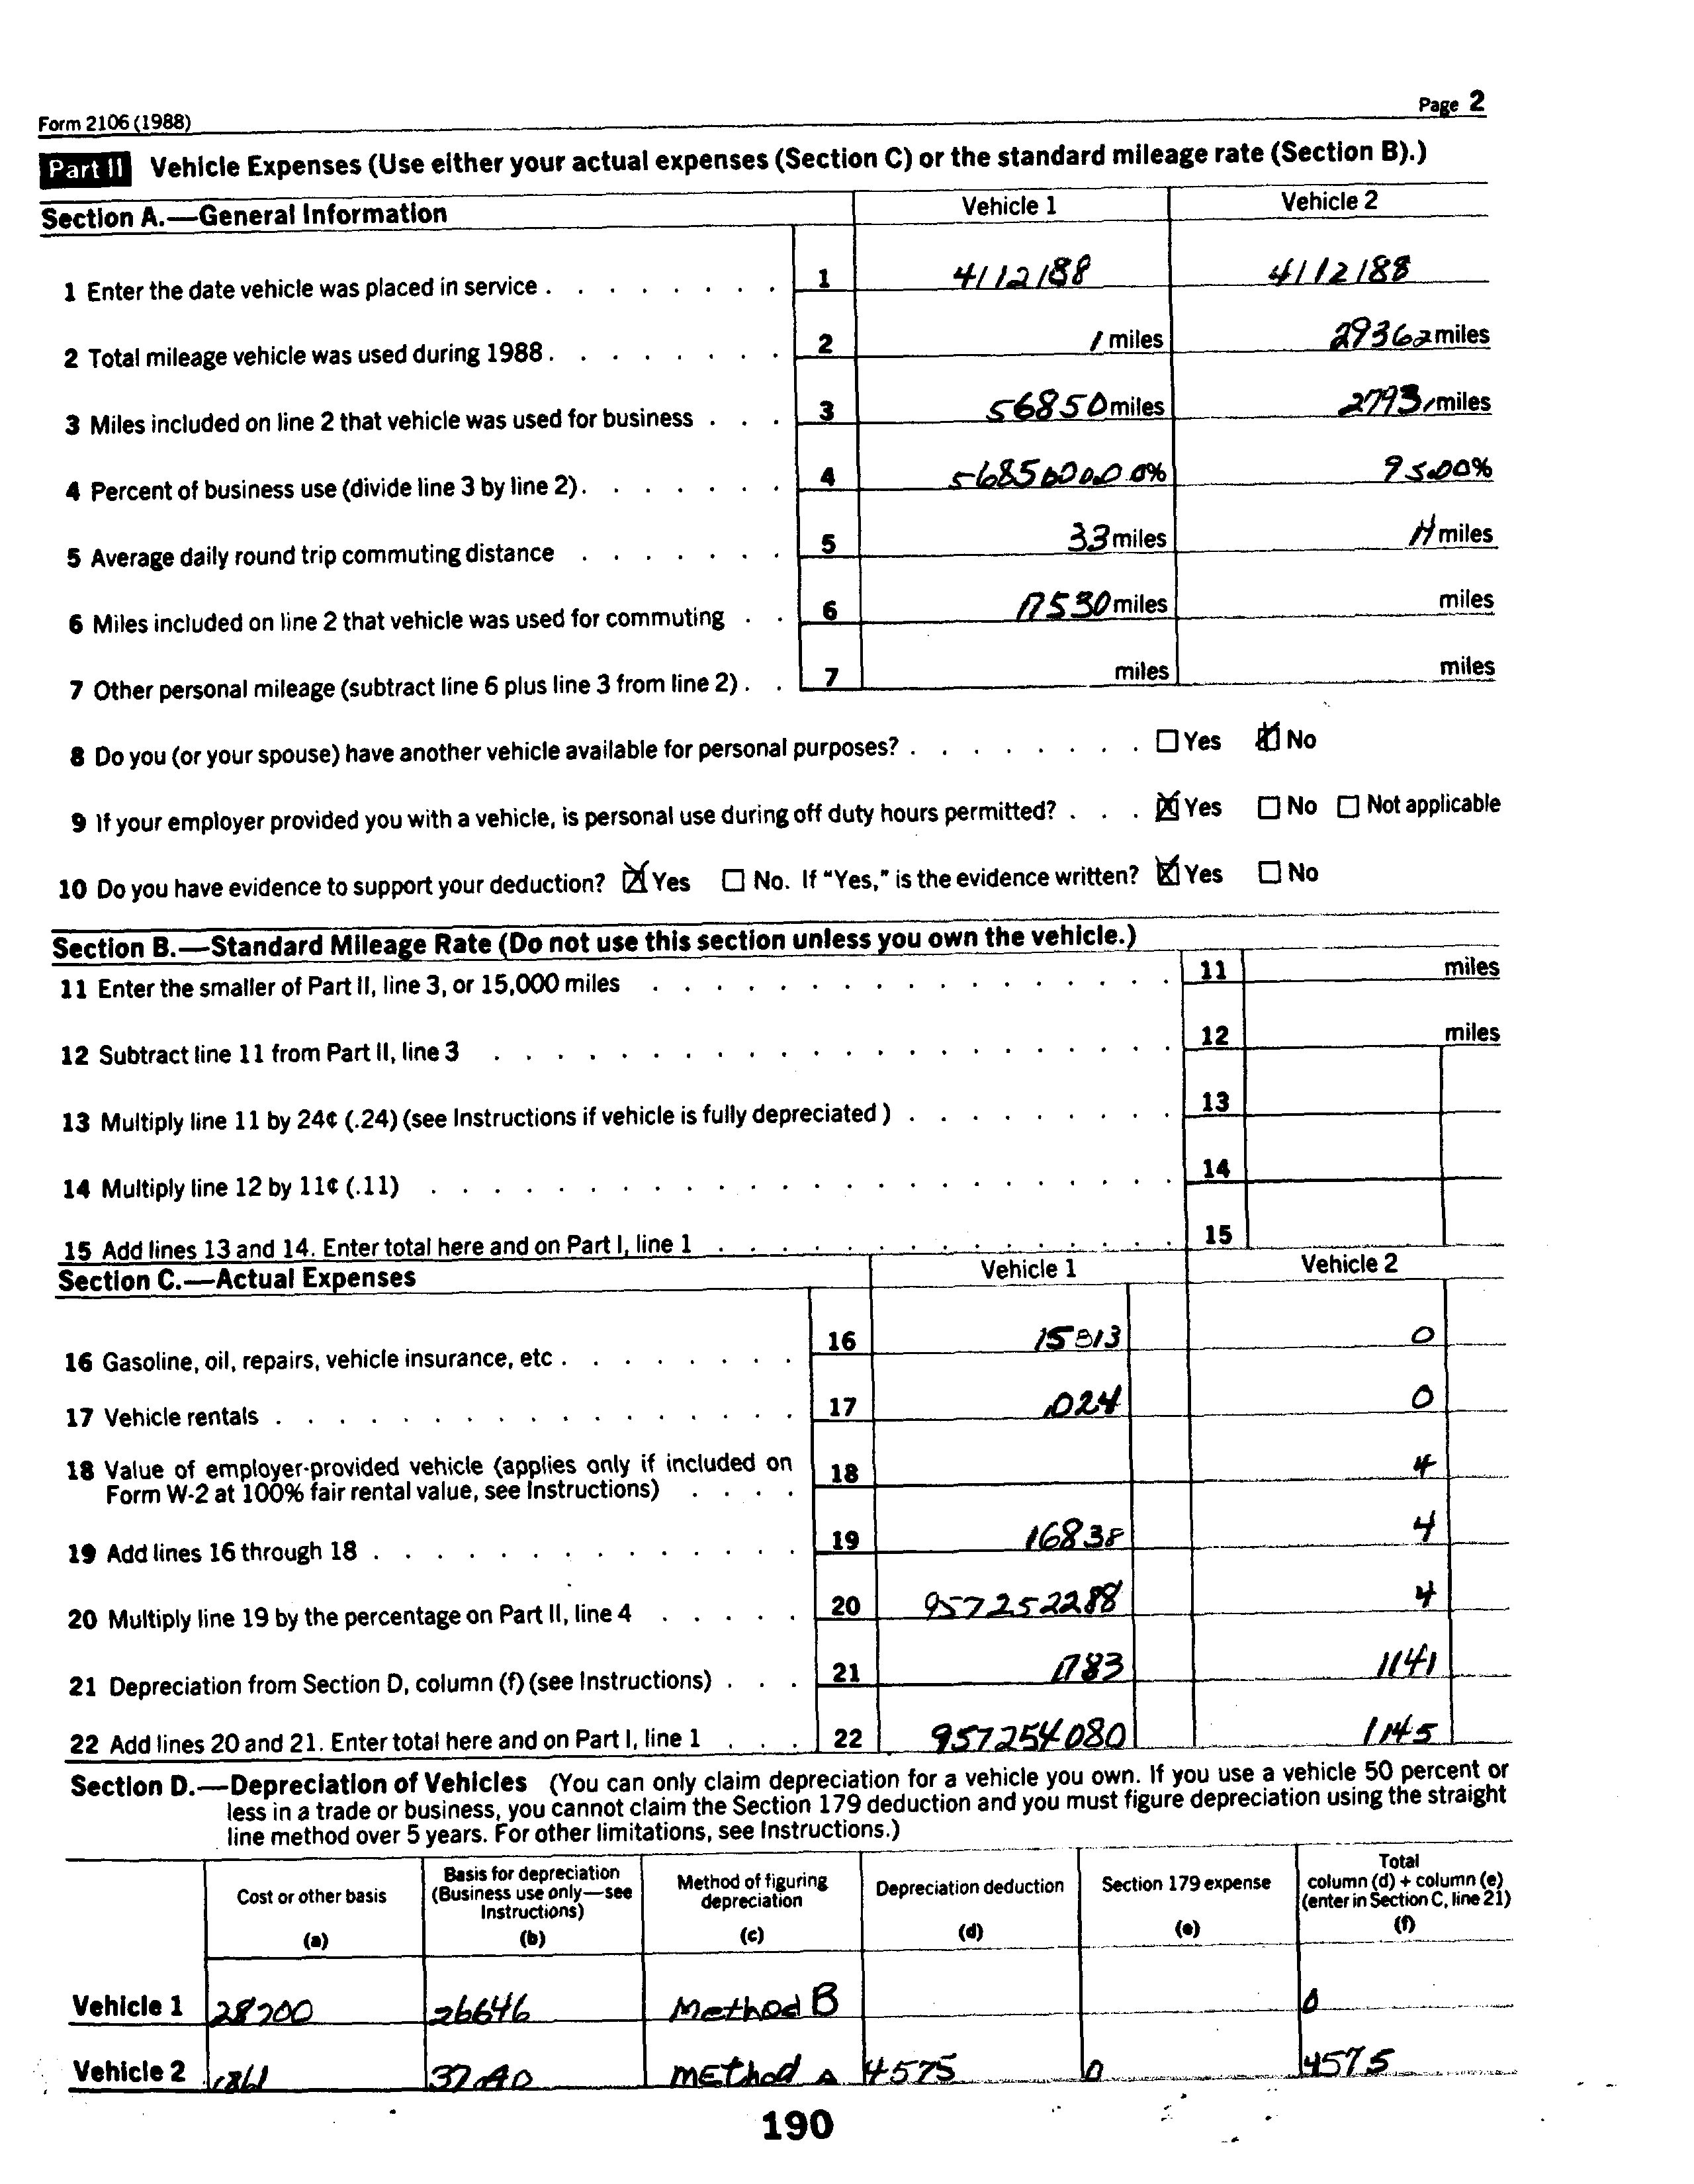 Form 2106 (1988) Page 2
Part II Vehicle Expenses (Use either your actual expenses (Section C) or the standard mileage rate (Section B).)
Section A.—General Information Vehicle 1 Vehicle 2
1 Enter the date vehicle was placed in service . . . . . . . . 1 4/12/88 4/12/88
2 Total mileage vehicle was used during 1988 . . . . . . . . 2 1 miles 29362 miles
3 Miles included on line 2 that vehicle was used for business . . . 3 56850 miles 27931 miles
4 Percent of business use (divide line 3 by line 2) . . . . . . . 4 5685000.00% 95.00%
5 Average daily round trip commuting distance . . . . . . . 5 33 miles miles
6 Miles included on line 2 that vehicle was used for commuting . . 6 17530 miles miles
7 Other personal mileage (subtract line 6 plus line 3 from line 2) . . 7 miles miles
8 Do you (or your spouse) have another vehicle available for personal purposes? . . . . . . . . ☐ Yes ☒ No
9 If your employer provided you with a vehicle, is personal use during off duty hours permitted? . . . ☒ Yes ☐ No ☐ Not applicable
10 Do you have evidence to support your deduction? ☒ Yes ☐ No. If "Yes," is the evidence written? ☒ Yes ☐ No
Section B.—Standard Mileage Rate (Do not use this section unless you own the vehicle.)
11 Enter the smaller of Part II, line 3, or 15,000 miles . . . . . . . . . . . . . . . . . 11 miles
12 Subtract line 11 from Part II, line 3 . . . . . . . . . . . . . . . . . . . . . . 12 miles
13 Multiply line 11 by 24¢ (.24) (see Instructions if vehicle is fully depreciated ) . . . . . . . . . 13
14 Multiply line 12 by 11¢ (.11) . . . . . . . . . . . . . . . . . . . . . . . . 14
15 Add lines 13 and 14. Enter total here and on Part I, line 1 . . . . . . . . . . . . . . . 15
Section C.—Actual Expenses Vehicle 1 Vehicle 2
16 Gasoline, oil, repairs, vehicle insurance, etc . . . . . . . . 16 15813 0
17 Vehicle rentals . . . . . . . . . . . . . . . . . 17 1024 0
18 Value of employer-provided vehicle (applies only if included on 18 4
Form W-2 at 100% fair rental value, see Instructions) . . . .
19 Add lines 16 through 18 . . . . . . . . . . . . . . 19 16838 4
20 Multiply line 19 by the percentage on Part II, line 4 . . . . . 20 957252288 4
21 Depreciation from Section D, column (f) (see Instructions) . . . 21 1783 1141
22 Add lines 20 and 21. Enter total here and on Part I, line 1 . . . 22 957254080 1145
Section D.—Depreciation of Vehicles (You can only claim depreciation for a vehicle you own. If you use a vehicle 50 percent or
less in a trade or business, you cannot claim the Section 179 deduction and you must figure depreciation using the straight
line method over 5 years. For other limitations, see Instructions.)
Cost or other basis Basis for depreciation (Business use only—see Instructions) Method of figuring depreciation Depreciation deduction Section 179 expense Total column (d) + column (e) (enter in Section C, line 21)
(a) (b) (c) (d) (e) (f)
Vehicle 1 28200 26646 Method B 0
Vehicle 2 1861 Method A 4575 0 4575
190